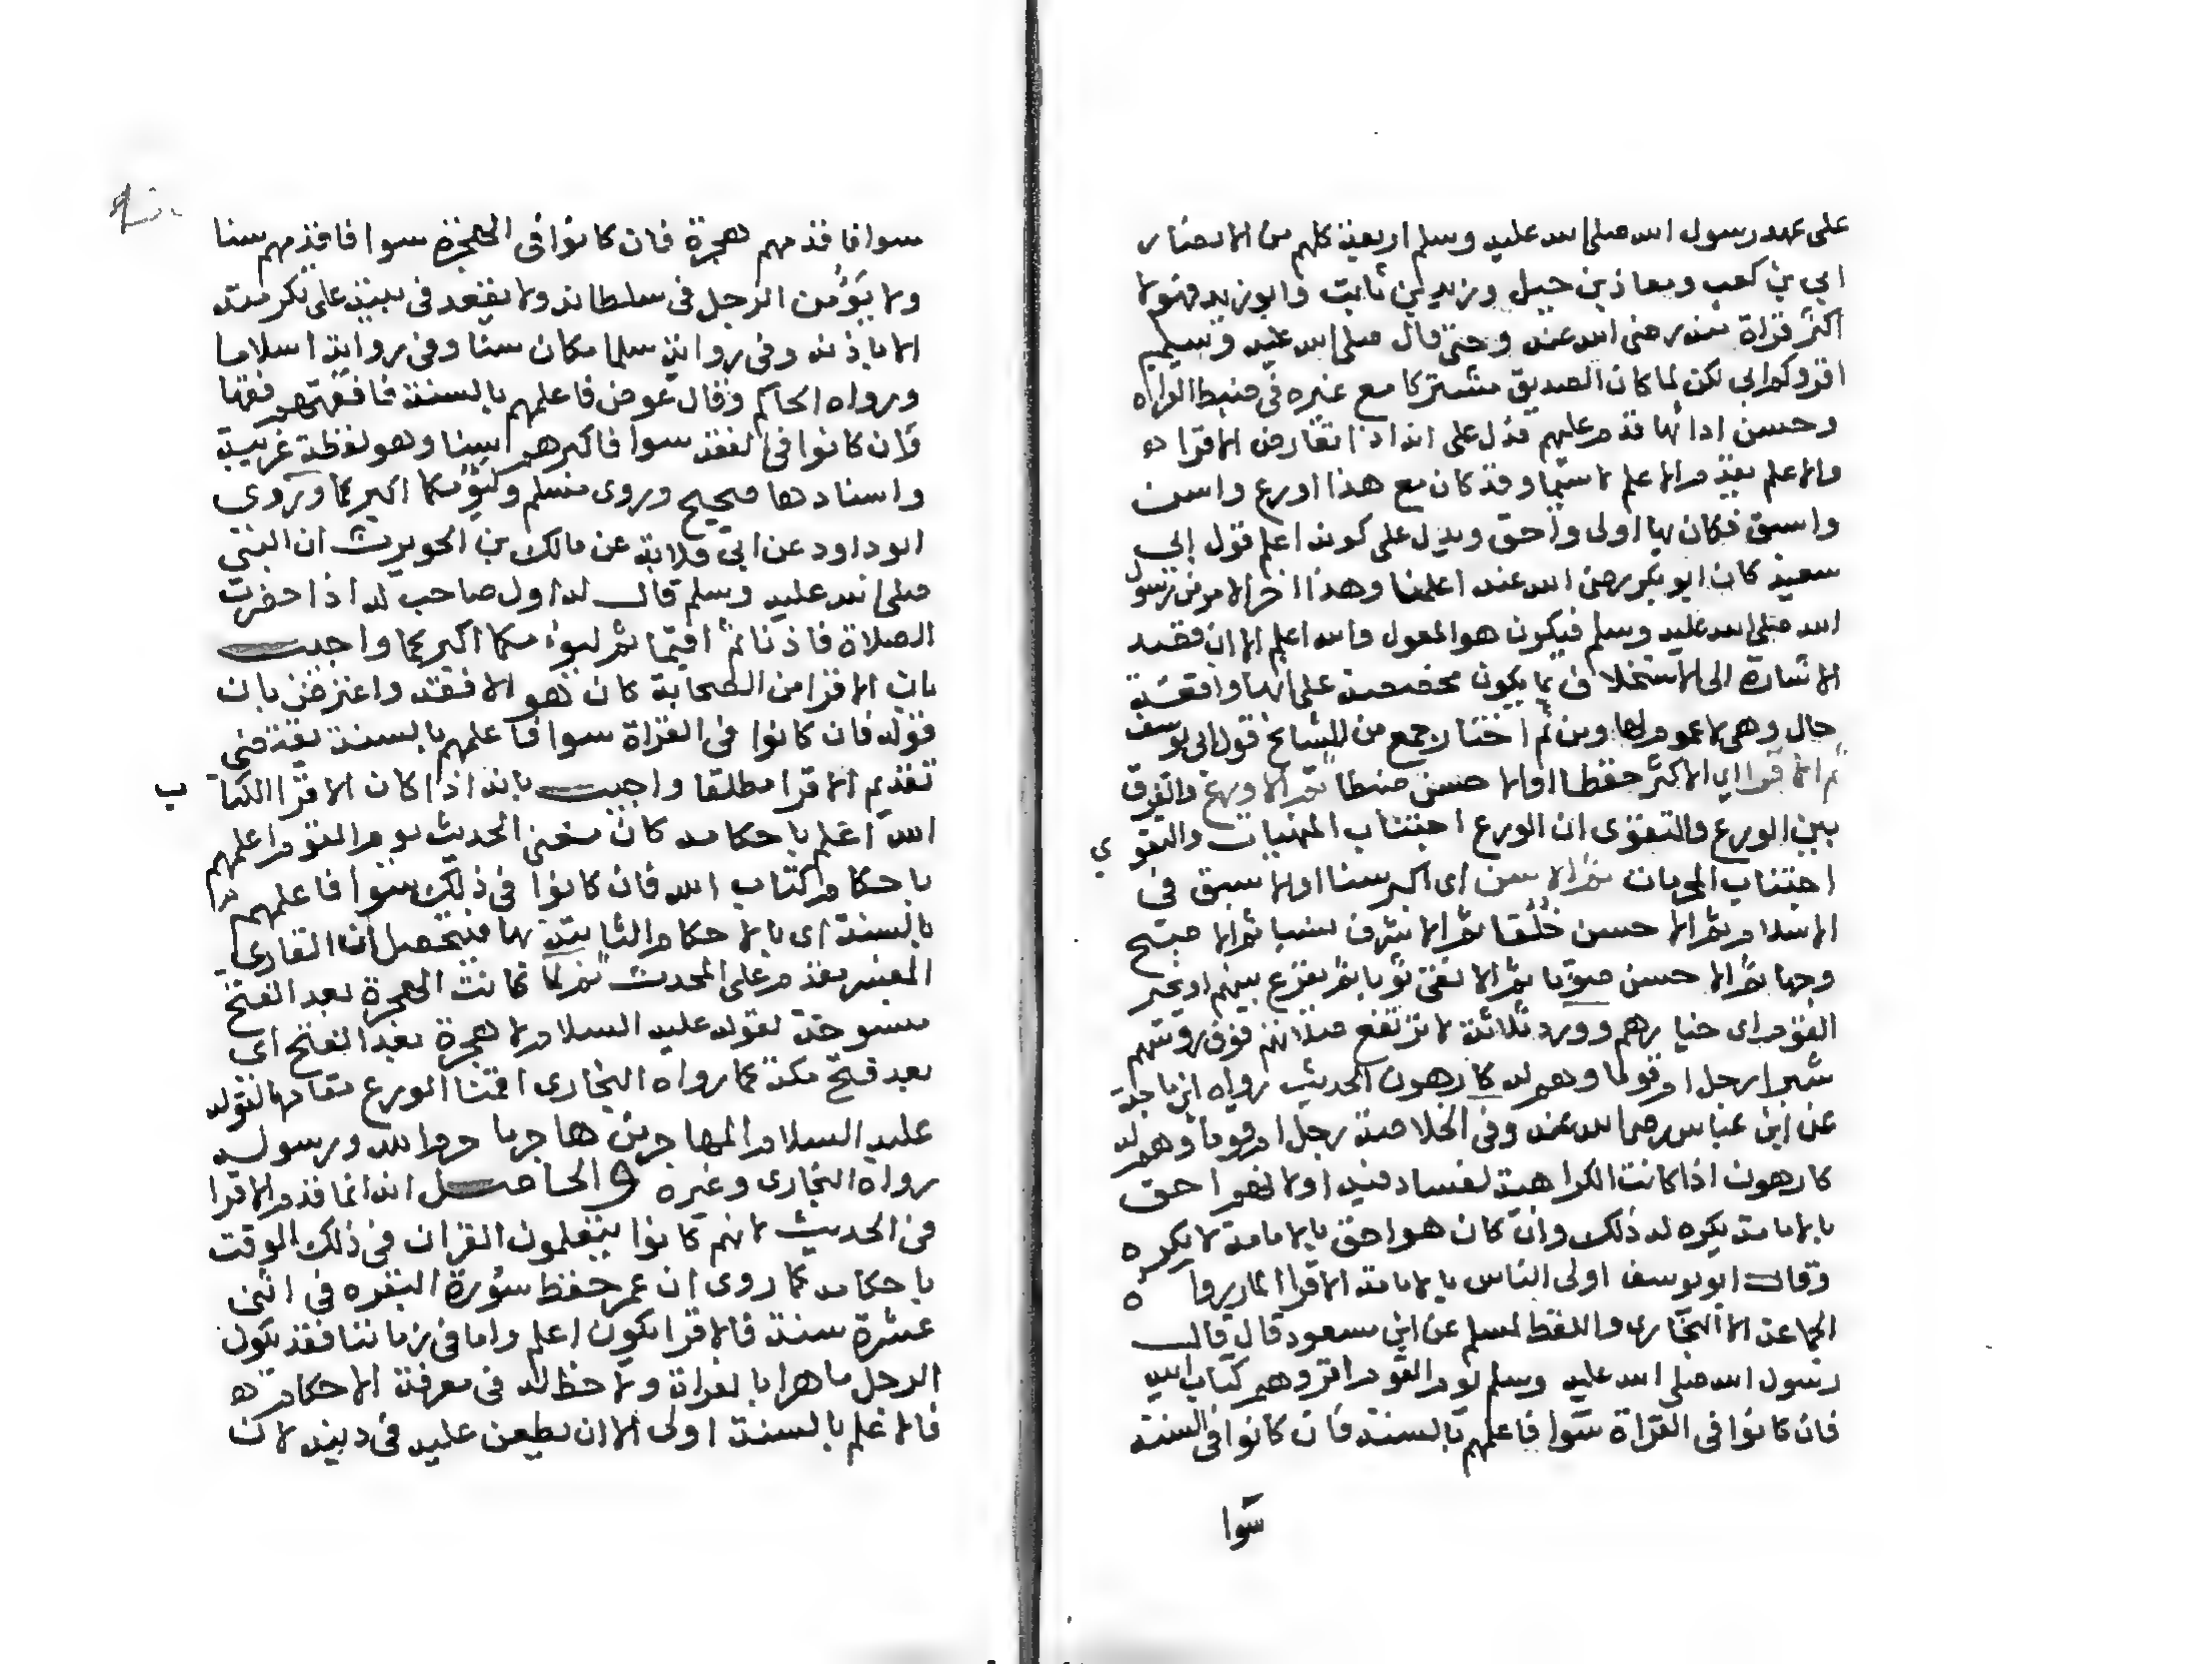 على عهد رسول الله صلى الله عليه وسلم اربعة كلهم من الانصار
ابي بن كعب ومعاذ بن جبل وزيد بن ثابت وابو زيد فهولا
اكثر قراة منه رضى الله عنه وحتى قال صلى الله عليه وسلم
اقروكم ابي لكن لما كان الصديق مشتركا مع غيره فى ضبط القراه
وحسن ادائها قدم عليهم فدل على انه اذا تعارض الاقرا
والاعلم يقدم الاعلم لا سيما وقد كان مع هذا اورع واسن
واسبق فكان بها اولى واحق ويدل على كونه اعلم قول ابي
سعيد كان ابو بكر رضى الله عنه اعلمنا وهذا اخر الامر من رسول
الله صلى الله عليه وسلم فيكون هو المعول والله اعلم الا ان قصد
الاشارة الى الاستخلاف بما يكون مخصصة على انها واقعة
حال وهى لا عموم لها ومن ثم اختار جمع من المشايخ قول ابى يوسف
ثم الاقرا اى الاكثر حفظا او الا حسن ضبطا ثم الاورع والفرق
بين الورع والتقوى ان الورع اجتناب المنهيات والتقوي
اجتناب المحرمات ثم الاسن اى اكبر سنا او الاسبق فى
الاسلام ثم الا حسن خلقا ثم الاشرف نسبا ثم الا صبح
وجها ثم الا حسن صوتا ثم الا نقى ثوبا ثم يقرع بينهم او يخير
القوم اى خيارهم وورد ثلاثة لا ترتفع صلاتهم فوق روسهم
شبرا رجل ام قوما وهم له كارهون الحديث رواه ابن ماجة
عن ابن عباس رضى الله عنه وفى الخلاصة رجل ام قوما وهم له
كارهون اذا كانت الكراهية لفساد فيه او لانهم احق
بالامامة يكره له ذلك وان كان هو احق بالامامة لا يكره
وقال ابو يوسف اولى الناس بالامامة الاقرا لما روا
الجماعة الا البخارى واللفظ لمسلم عن ابى مسعود قال قال
رسول الله صلى الله عليه وسلم يوم القوم اقروهم كتاب الله
فان كانوا فى القراة سوا فاعلمهم بالسنة فان كانوا فى السنة
سوا
سوا فاقدمهم هجرة فان كانوا فى الهجرة سوا فاقدمهم سنا
ولا يؤمن الرجل فى سلطانه ولا يقعد فى بيته على تكرمته
الا باذنه وفى رواية سلما مكان سنا وفى رواية اسلاما
ورواه الحاكم وقال عوض فاعلمهم بالسنة فافقههم فقها
فان كانوا فى الفقه سوا فاكبرهم سنا وهو لفظة غريبة
واسنادها صحيح وروى مسلم وليؤمكما اكبركما وروى
ابو داود عن ابى قلابة عن مالك بن الحويرث ان النبى
صلى الله عليه وسلم قال له او لصاحب له اذا حضرت
الصلاة فاذنا ثم اقيما ثم ليؤمكما اكبركما واجيب
بان الاقرا من الصحابة كان هو الافقه واعترض بان
قوله فان كانوا فى القراة سوا فاعلمهم بالسنة يقتضى
تقديم الاقرا مطلقا واجيب بانه اذا كان الاقرا الكتاب
الله اعلم باحكامه كان معنى الحديث يوم القوم اعلمهم
باحكام كتاب الله فان كانوا فى ذلك سوا فاعلمهم
بالسنة اى بالا حكام الثابتة بها فيتحصل ان القارى
المفسر يقدم على المحدث ثم لما كانت الهجرة بعد الفتح
منسوخة لقوله عليه السلام لا هجرة بعد الفتح اى
بعد فتح مكة كما رواه البخارى اقمنا الورع مقامها لقوله
عليه السلام المهاجر من هاجر ما حرم الله ورسوله
رواه البخارى وغيره والحاصل انه انما قدم الاقرا
فى الحديث لانهم كانوا يتعلمون القران فى ذلك الوقت
باحكامه كما روى ان عمر حفظ سورة البقره فى اثنى
عشرة سنة فالاقرا يكون اعلم واما فى زماننا فقد يكون
الرجل ماهرا بالقراة ولا حظ له فى معرفة الاحكام
فالاعلم بالسنة اولى الا ان يطعن عليه فى دينه لان